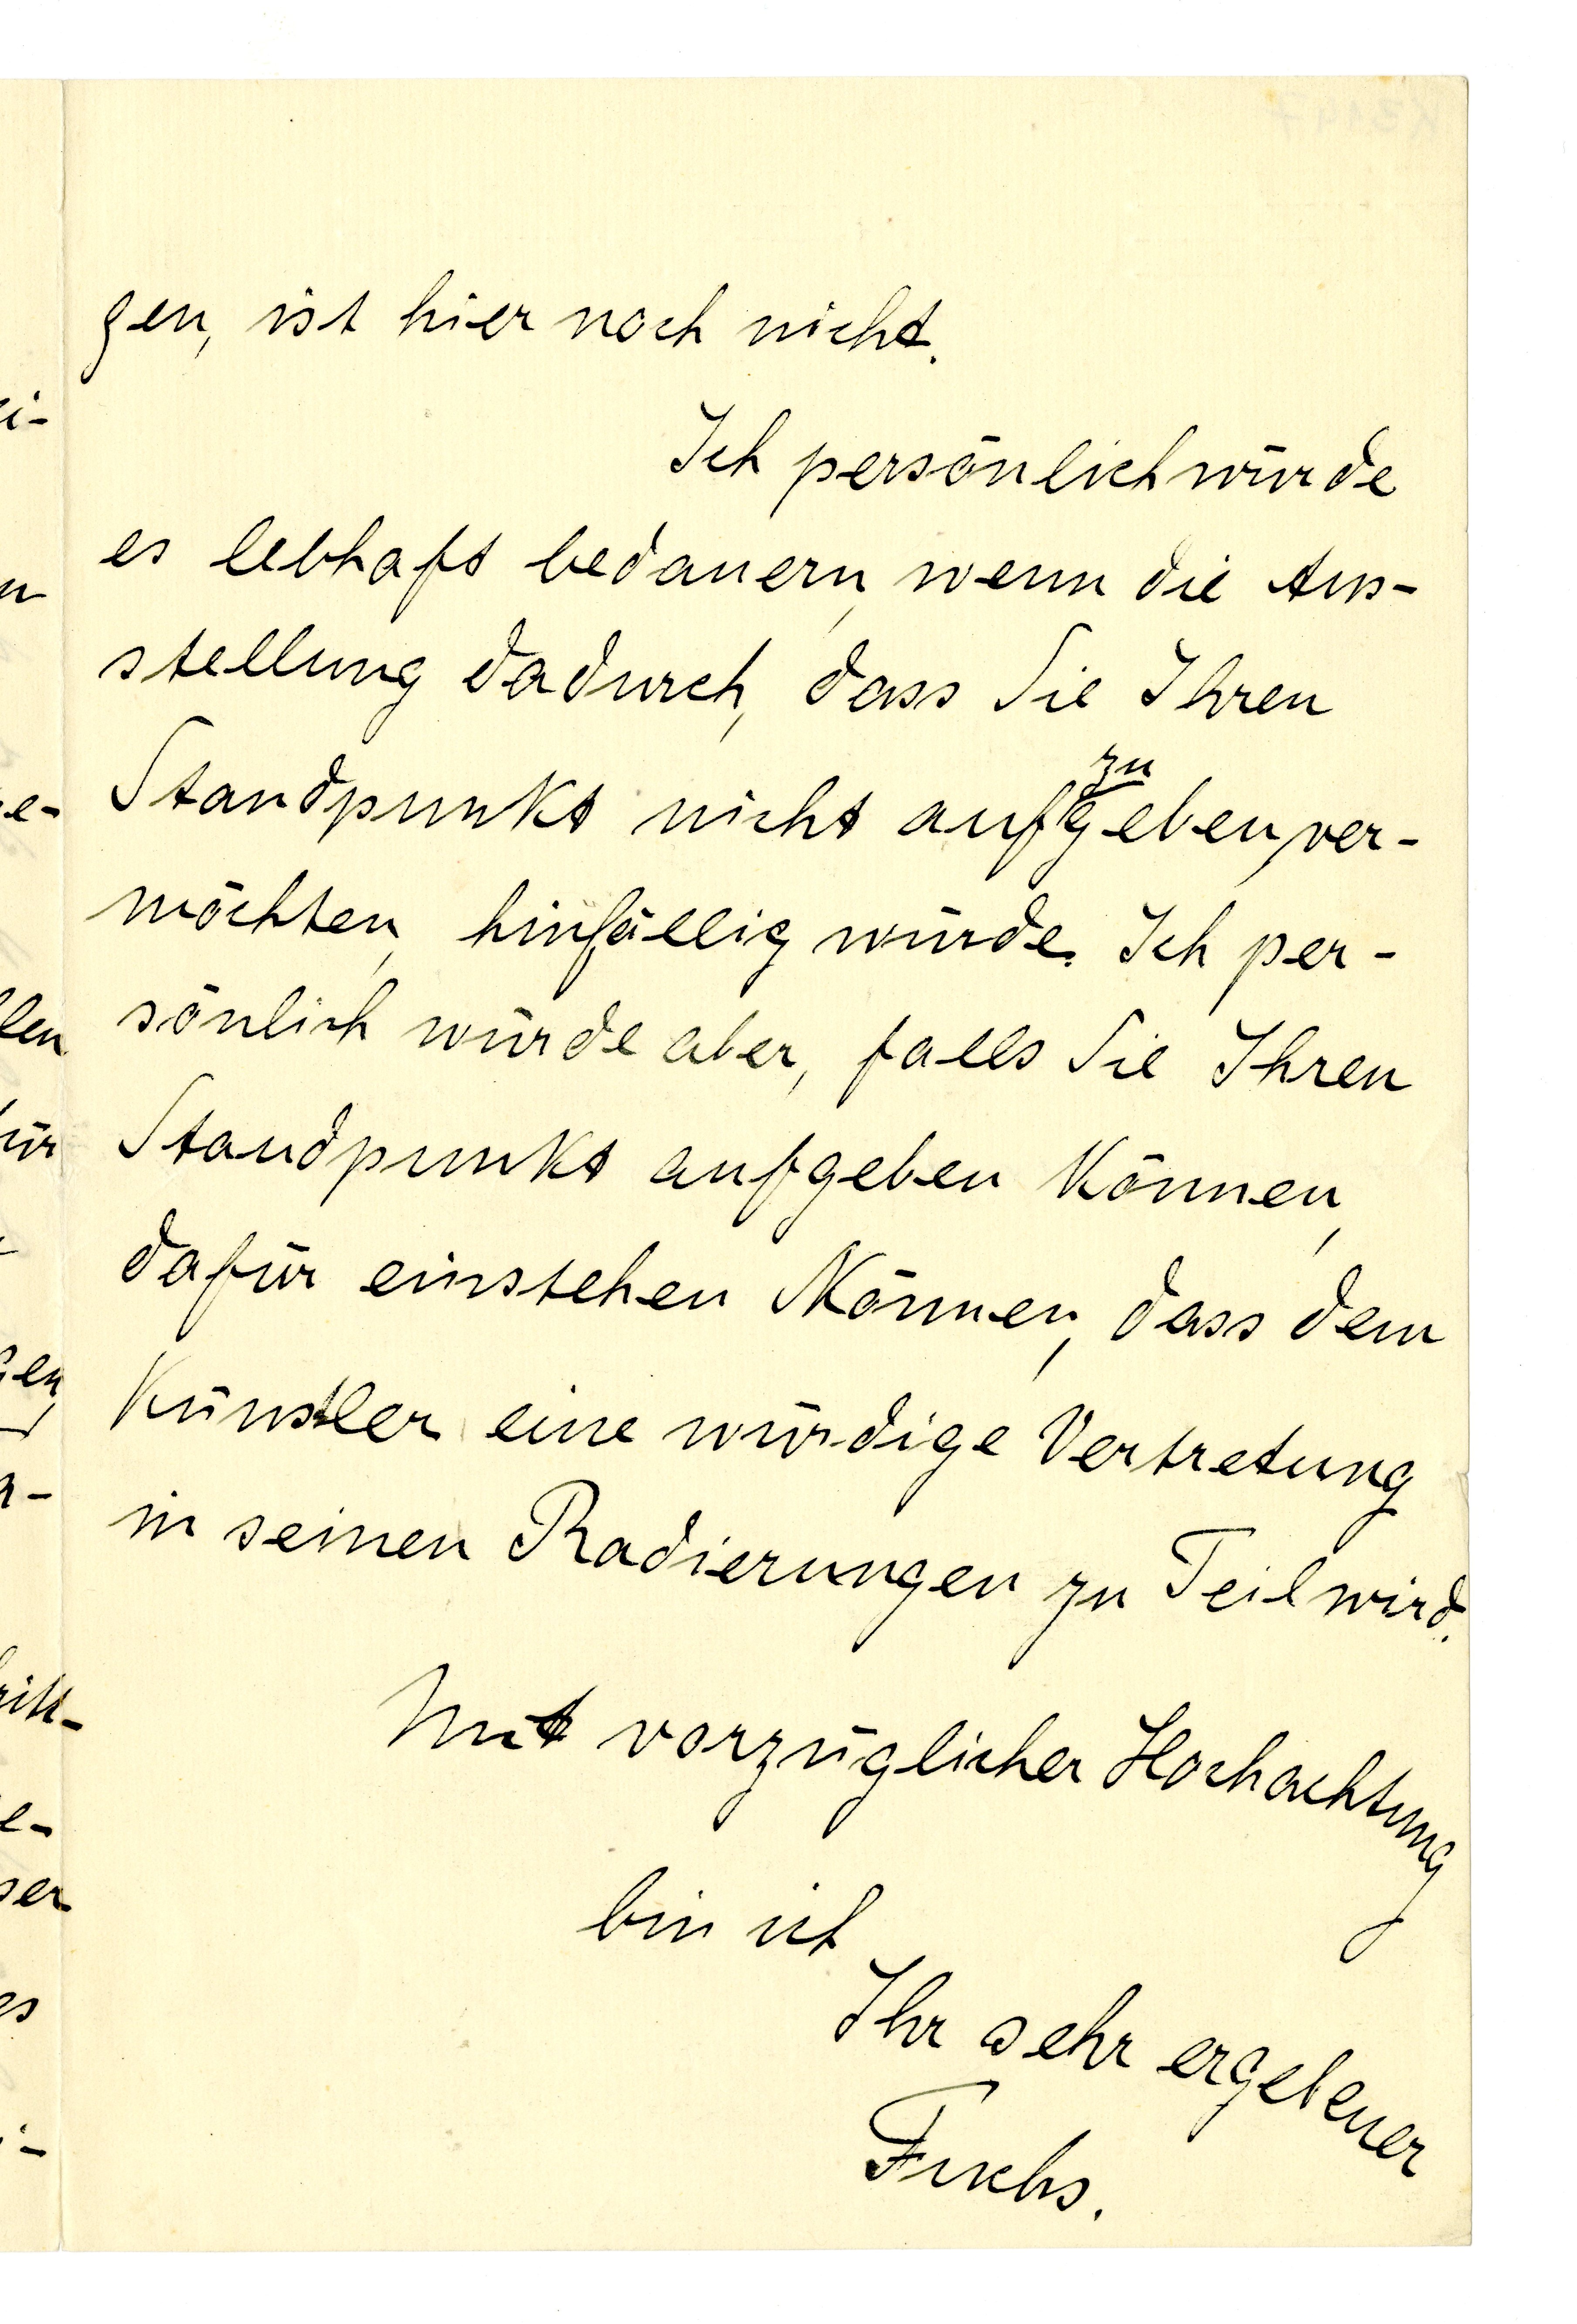 gen, ist hier noch nicht.
Ich persönlich würde
es lebhaft bedauern, wenn die Aus-
stellung dadurch, dass Sie Ihren
Standpunkt nicht aufzugeben ver-
möchten, hinfällig würde. Ich per-
sönlich würde aber, falls Sie Ihren
Standpunkt aufgeben können,
dafür einstehen können, dass dem
Künstler eine würdige Vertretung
in seinen Radierungen zu Teil wird.
Mit vorzüglicher Hochachtung
bin ich
Ihr sehr ergebener
Fuchs.